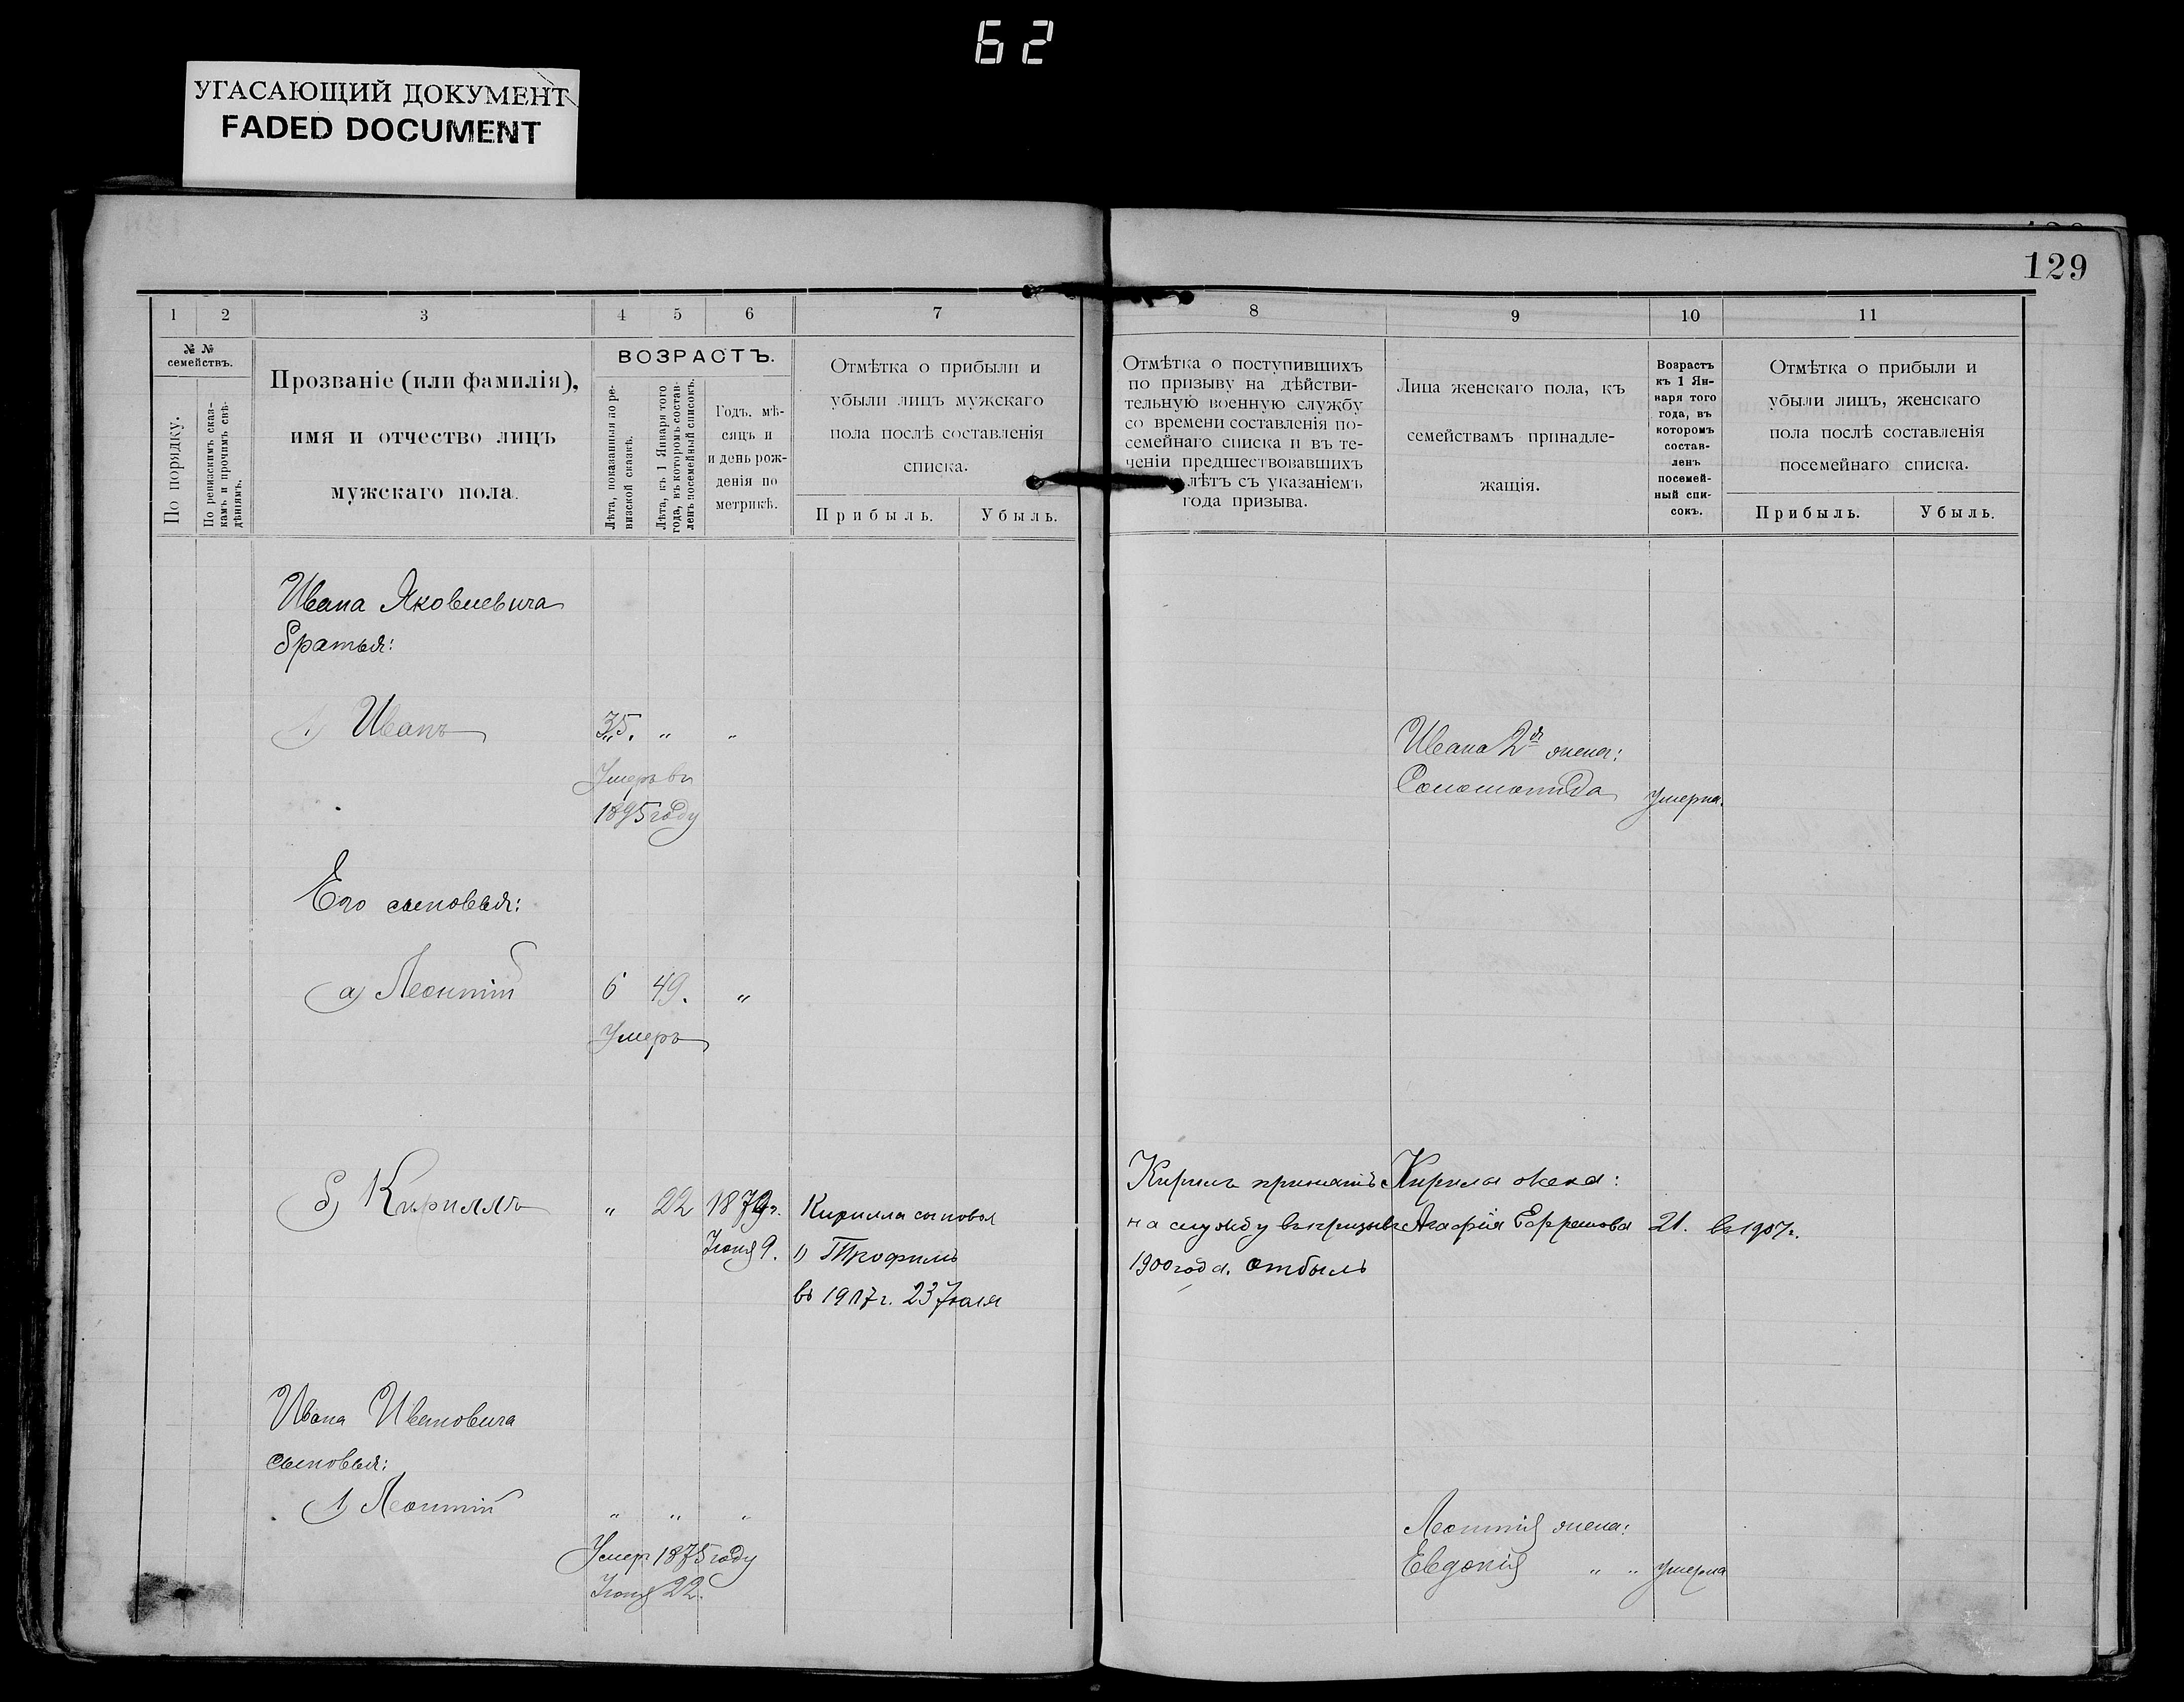 62
УГАСАЮЩИЙ ДОКУМЕНТ
FADED DOCUMENT
129
1 2 3 4 5 6 7 8 9 10 11
№ №
семействъ.
По порядку.
По ревизскимъ сказ-
камъ и прочимъ свѣ-
дѣніямъ.
Прозваніе (или фамилія),
имя и отчество лицъ
мужскаго пола.
ВОЗРАСТЪ.
Лѣта, показанныя по ре-
визской сказкѣ.
Лѣта, къ 1 Января того
года, въ которомъ состав-
ленъ посемейный списокъ.
Годъ, мѣ-
сяцъ и
и день рож-
денія по
метрикѣ.
Отмѣтка о прибыли и
убыли лицъ мужскаго
пола послѣ составленія
списка.
Прибыль. Убыль.
Отмѣтка о поступившихъ
по призыву на дѣйстви-
тельную военную службу
со времени составленія по-
семейнаго списка и въ те-
ченіи предшествовавшихъ
лѣтъ съ указаніемъ
года призыва.
Лица женскаго пола, къ
семействамъ принадле-
жащія.
Возрастъ
къ 1 Ян-
варя того
года, въ
которомъ
состав-
ленъ
посемей-
ный спи-
сокъ.
Отмѣтка о прибыли и
убыли лицъ, женскаго
пола послѣ составленія
посемейнаго списка.
Прибыль. Убыль.
Ивана Яковлевича
братья:
1) Иванъ 35. " "
Умеръ въ
1895 году
Ивана 2й жена:
Соломонида Умерла.
Его сыновья:
а) Леонтій 6 49. "
Умеръ
б) Кириллъ " 22 1879г.
Іюня 9.
Кирилла сыновья
1) Трофимъ
въ 1907г. 23 Іюля
Кирилъ принятъ
на службу въ призывъ
1900 года. Отбылъ
Кирилы жена:
Агафія Ефремова 21. въ 1907г.
Ивана Ивановича
сыновья:
1) Леонтій " " "
Умер 1875 году
Іюня 22.
Леонтія жена:
Евдокія " " Умерла